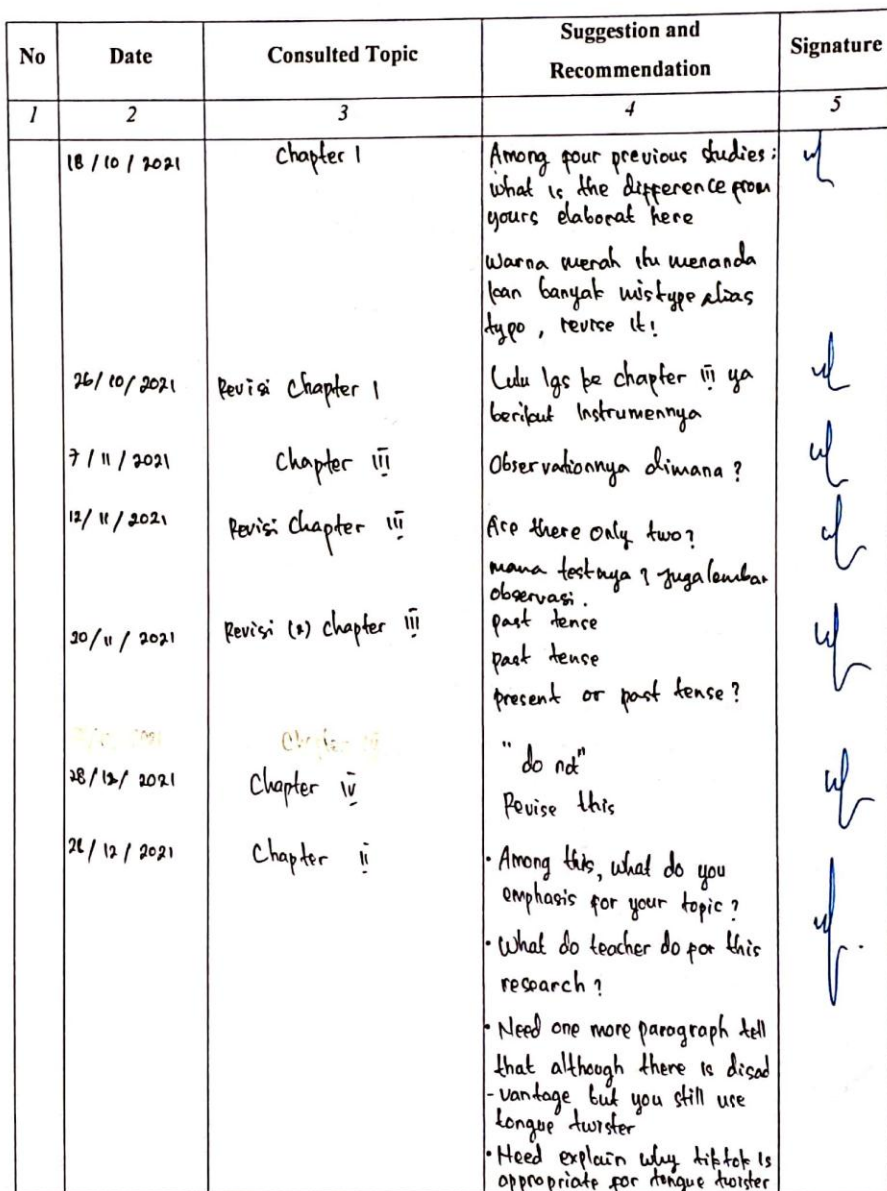 No Date Consulted Topic Suggestion and Recommendation Signature
1 2 3 4 5
18/10/2021 Chapter I Among four previous studies:
what is the difference from
yours elaborat here
Warna merah itu menanda
kan banyak mistype alias
typo, revise it!
26/10/2021 Revisi Chapter I Lalu lgs ke chapter III ya
berikut Instrumennya
7/11/2021 Chapter III Observationnya dimana?
12/11/2021 Revisi Chapter III Are there only two?
mana testnya? juga lembar
observasi.
20/11/2021 Revisi (2) Chapter III past tence
past tense
present or past tense?
28/12/2021 Chapter IV "do not"
Revise this
28/12/2021 Chapter II • Among this, what do you
emphasis for your topic?
• What do teacher do for this
research?
• Need one more paragraph tell
that although there is disad
-vantage but you still use
tongue twister
• Need explain why tiktok is
appropriate for tongue twister